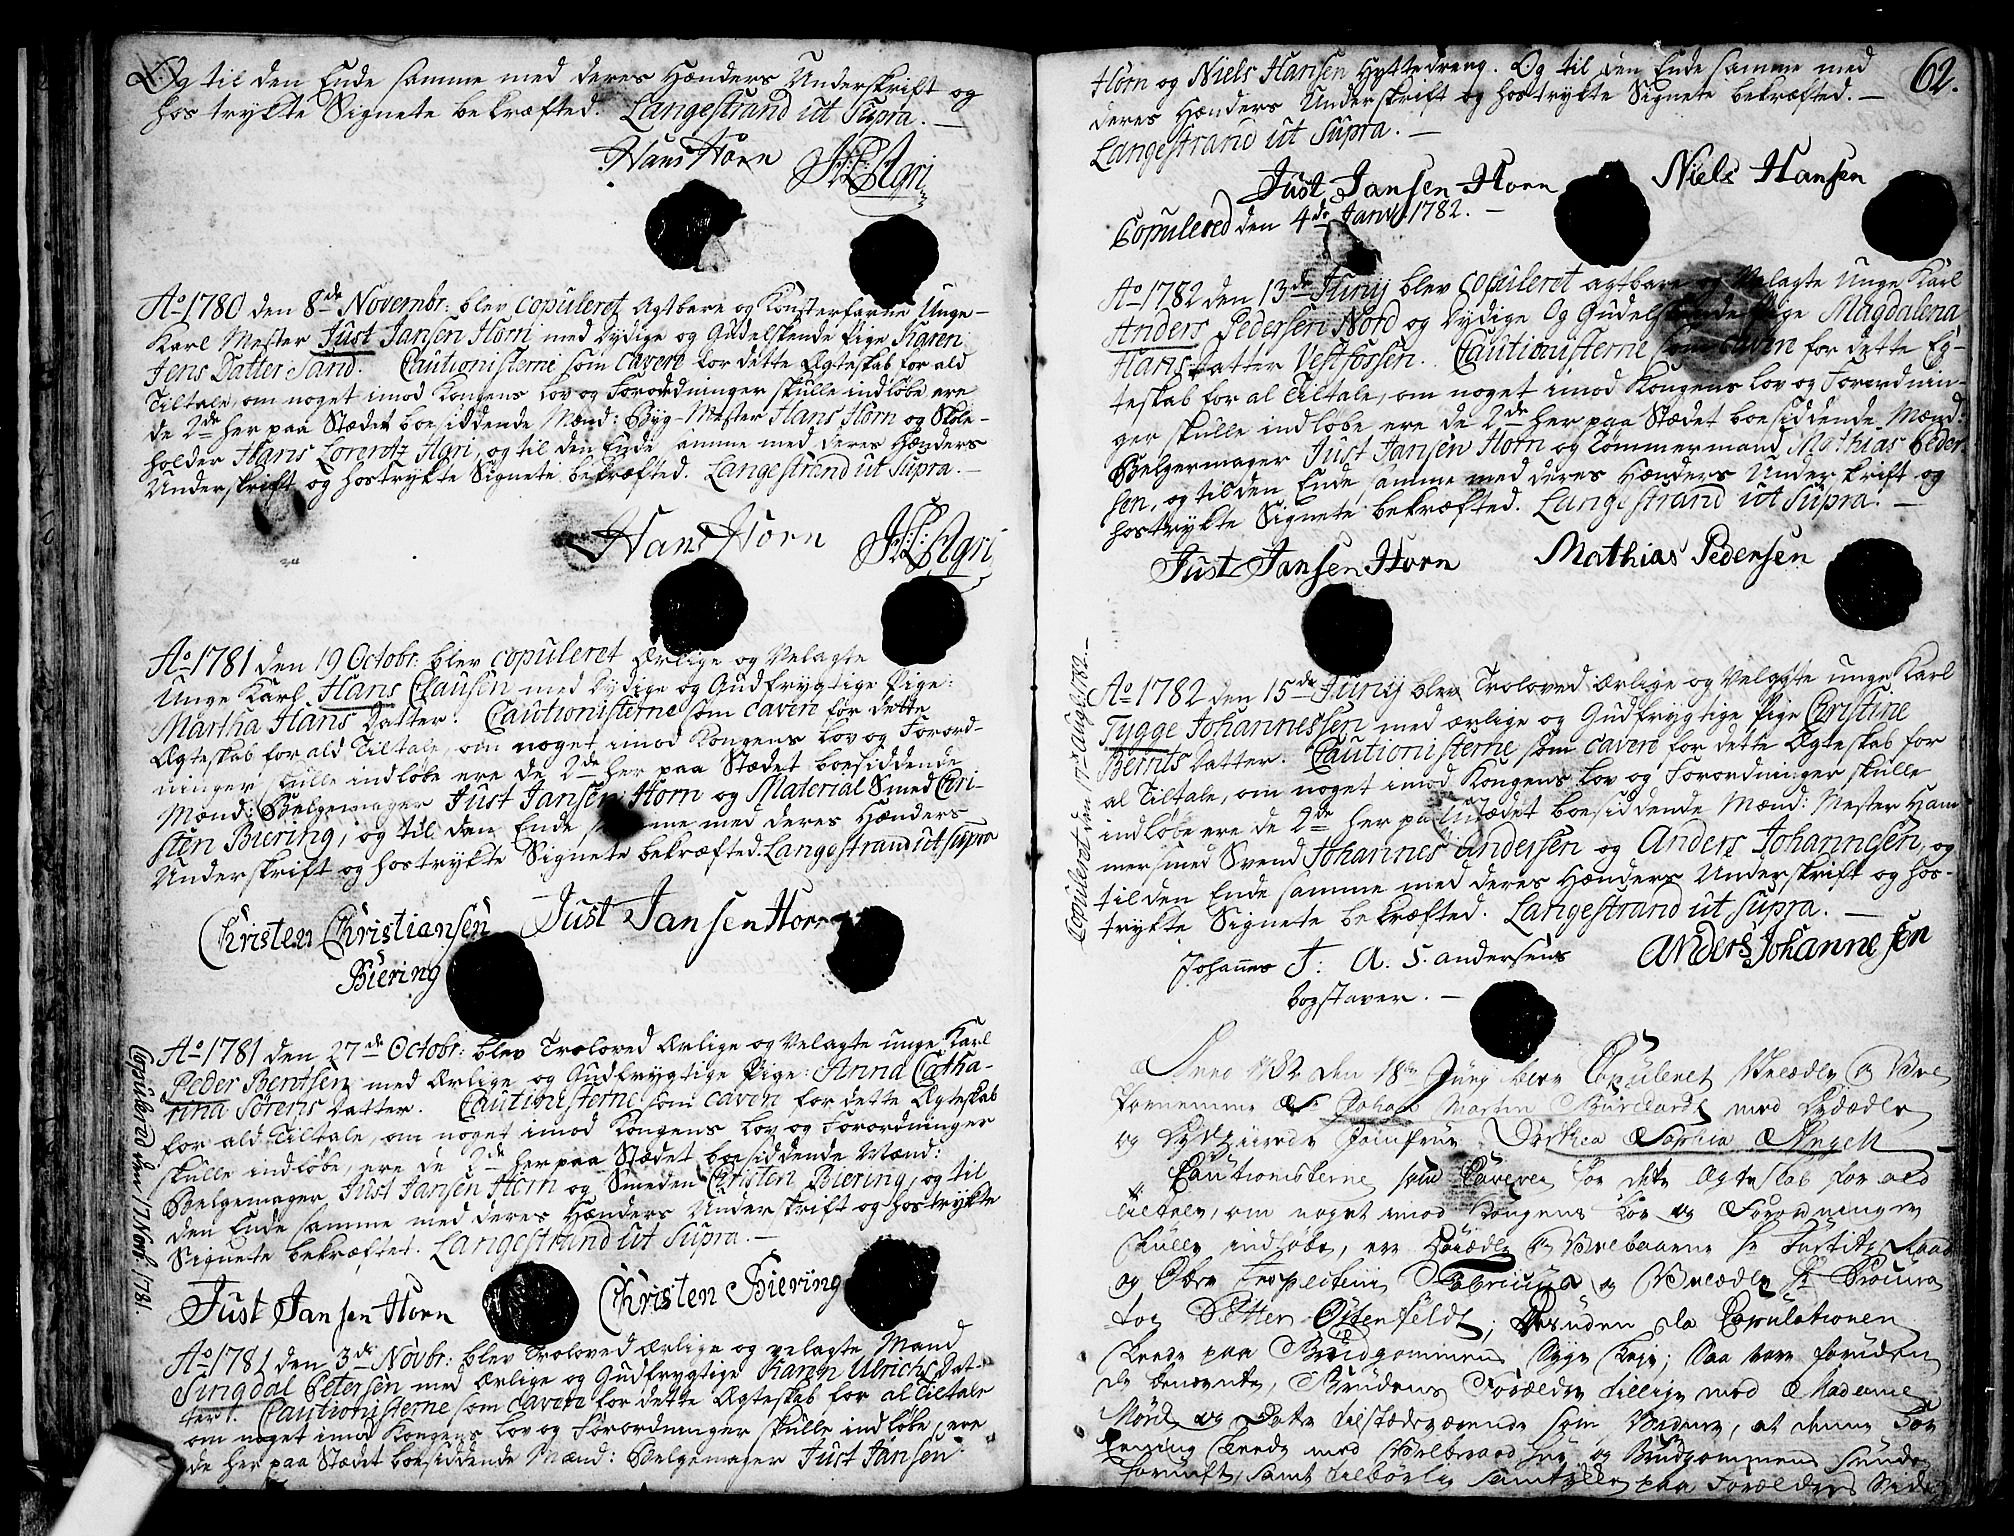 Og til den Ende samme med deres Hænders Underskrift og
hos trykte Signete bekræfted. Langestrand ut Supra. —
Hans Horn H: L: Agri
Ao 1780 den 8de Novembr: blev copuleret Agtbare og Konsterfarne Unge-
Karl Mester Just Jansen Horn med Dydige og Gudelskende Pige Karen
Jens Datter Sand. Cautionisterne som cavere for dette Ægteskab for ald
Tiltale, om noget imod Kongens Lov og Forordninger skulle indløbe ere
de 2de her paa Stædet boesiddende Mænd: Byg-Mester Hans Horn og Skole-
holder Hans Lorentz Agri, og til den Ende samme med deres Hænders
Underskrift og hostrykte Signete bekræfted. Langestrand ut Supra. —
Hans Horn H: L: Agri
Ao 1781 den 19 Octobr: blev copuleret Ærlige og Velagte
Unge Karl Hans Clausen med Dydige og Gudfrygtige Pige:
Martha Hans Datter. Cautionisterne som cavere for dette
Ægteskab for ald Tiltale, om noget imod Kongens Lov og Forord-
ninger skulle indløbe ere de 2de her paa Stædet boesiddende
Mænd: Belgemager Just Jansen Horn og Material Smed Chri-
sten Biering, og til den Ende samme med deres Hænders
Underskrift og hostrykte Signete bekræfted. Langestrand ut supra
Christen Christiansen Just Jansen Horn
Biering
Ao 1781 den 27de Octobr: blev Troloved Ærlige og Velagte unge Karl
Peder Bentsen med Ærlige og Gudfrygtige Pige: Anna Catha-
rina Sørens Datter. Cautionisterne som cavere for dette Ægteskab
for ald Tiltale, om noget imod Kongens Lov og Forordninger
skulle indløbe, ere de 2de her paa Stædet boesiddende Mænd:
Belgemager Just Jansen Horn og Smeden Christen Biering, og til
den Ende samme med deres Hænders Underskrift og hostrykte
Signete bekræftet. Langestrand ut Supra. —
Copulered den 17 Novb. 1781.
Just Jansen Horn Christen Biering
Ao 1781 den 3de Novbr: blev Troloved ærlige og velagte Mand
Singdal Petersen med Ærlige og Gudfrygtige Karen Ulrichs Dat-
ter. Cautionisterne som cavere for dette Ægteskab for al Tiltale
om noget imod Kongens Lov og Forordninger skulle indløbe, ere
de her paa Stædet boesiddende Mænd: Belgemager Just Jansen
62.
Horn og Niels Hansen Hyttedreng. Og til den Ende samme med
deres Hænders Underskrift og hostrykte Signete bekræfted. —
Langestrand ut Supra. —
Just Jansen Horn Niels Hansen
Copulered den 4de Janv. 1782. —
Ao 1782 den 13de Junij blev copuleret agtbare og Velagte Unge Karl
Anders Pedersen Nord og Dydige Og Gudelskende Pige Magdalena
Hans Datter Vestfossen. Cautionisterne som cavere for dette Eg-
teskab for al Tiltale, om noget imod Kongens Lov og Forordnin-
ger skulle indløbe ere de 2de her paa Stædet boesiddende Mænd:
Belgermager Just Jansen Horn og Tømmermand Mathias Peder-
sen, og til den Ende samme med deres Hænders Underskrift og
hostrykte Signete bekræfted. Langestrand ut Supra. —
Just Jansen Horn Mathias Pedersen
Copuleret den 17de Augt 1782. —
Ao 1782 den 15de Junij blev Troloved ærlige og Velagte unge Karl
Tygge Johannessen med ærlige og Gudfrygtige Pige Christine
Bernts Datter. Cautionisterne som cavere for dette Ægteskab for
al Tiltale, om noget imod Kongens Lov og Forordninger skulle
indløbe ere de 2de her paa Stædet boesiddende Mænd: Mester Ham
mersmed Svend Johannes Andersen og Anders Johannesen, og
til den Ende samme med deres Hænders Underskrift og hos-
trykte Signete bekræfted. Langestrand ut supra. —
Johannes J: A. S. andersens Anders Johannesen
bogstaver. —
Anno 1782 den 18de Junij blev Copuleret Velædle og Vel
fornemme Sr. Johan Martin Burchardt med Dydædle
og Dydziirede Jomfrue Dorthea Sophia Angell
Cautionisterne som Cavere for dette Ægteskab for ald
tiltale, om noget imod Kongens Lov og Forordninger
skulle indløbe, ere Velædle og Velbaarne Hr Justitz Raad
og Ober Inspecteur Fabricius og Velædle Hr Procura
tor Petter Ostenfeldt; Desuden da Copulationen
skeede paa Brudgommens Syge Leje; saa vare foruden
de benævnte, Brudens Forældre tillige med Madame
og tilstædeværende som Vidner, at denne For
eening skeede med Velberaad Hu og Brudgommens sunde
Fornuft, samt tilbørlig Samtykke paa Forældres Side